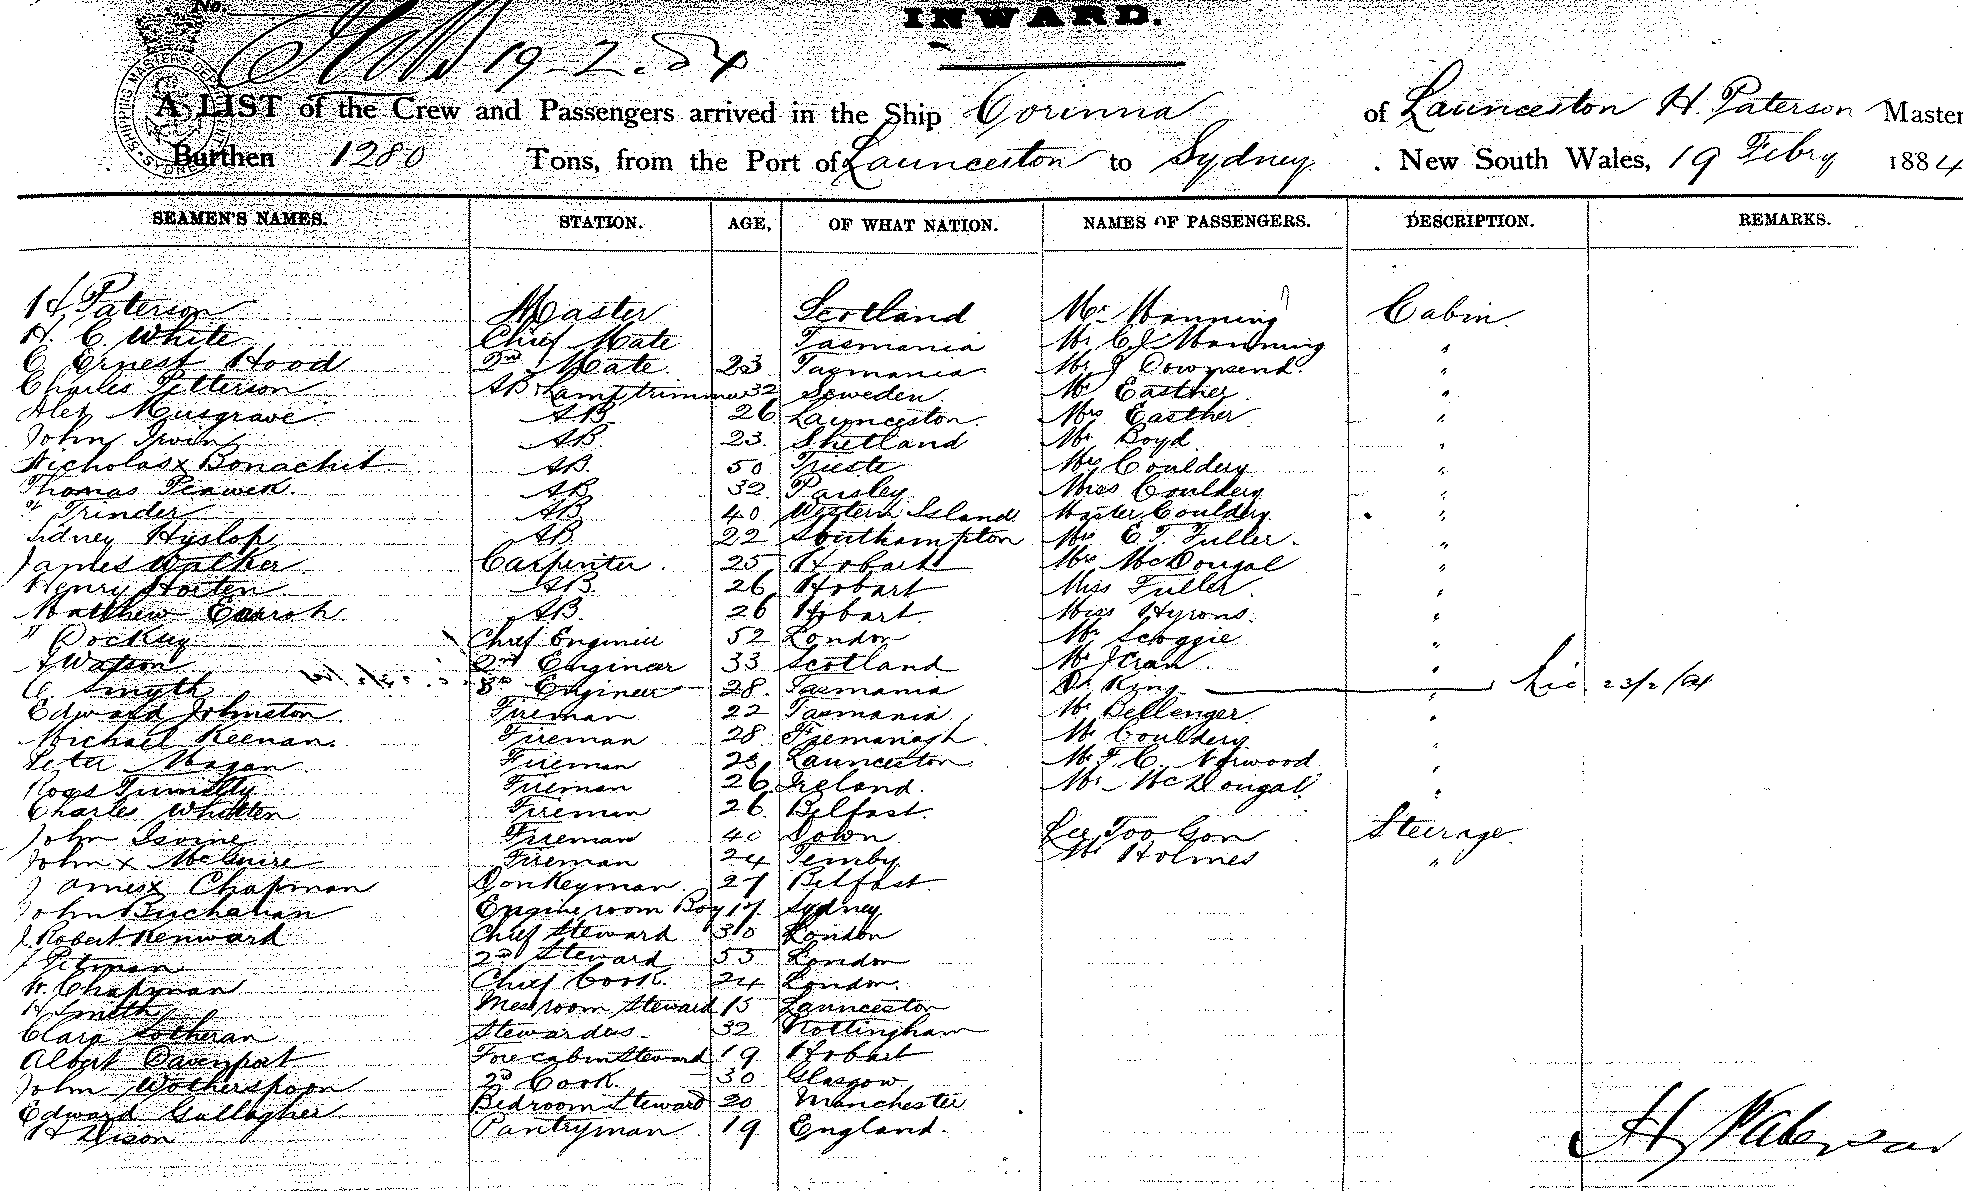 No.
INWARD.
19-2.84
A LIST of the Crew and Passengers arrived in the Ship Corinna of Launceston H. Paterson Master
Burthen 1280 Tons, from the Port of Launceston to Sydney. New South Wales, 19 Febry 1884
SEAMEN'S NAMES. STATION. AGE, OF WHAT NATION. NAMES OF PASSENGERS. DESCRIPTION. REMARKS.
H Paterson Master Scotland Mr Manning Cabin.
H. C. White Chief Mate Tasmania Mr C J Manning "
C Ernest Hood 2nd Mate 23 Tasmania Mr J Townsend. "
Charles Petterson AB. Lamptrimmer 32 Sweden. Mr Easther. "
Alex Musgrave AB 26 Launceston. Mrs Easther "
John Irwin AB. 23. Shetland Mr Boyd "
Nicholas x Bonachit AB. 50 Trieste Mrs Couldery "
Thomas Fenwick. AB 32 Paisley Miss Couldery "
" Trinder AB 40 Western Island Master Couldery "
Sidney Hyslop AB 22 Southampton Mrs E. T. Fuller. "
James Walker Carpenter. 25 Hobart Mrs McDougal "
Henry Horten AB. 26 Hobart Miss Fuller. "
Matthew AB. 26 Hobart. Miss Hyrons. "
" Chief Engineer 52 London Mr Scoggie "
Watson 2nd Engineer 33 Scotland Mr J Cran. "
C. Smyth 3rd Engineer 28. Tasmania Dr King 23/2/84
Edward Johnston Fireman 22 Tasmania Mr Bellenger. "
Michael Keenan. Fireman 28 Mr Couldery "
Peter Magan Fireman 23 Launceston Mr F C. Norwood "
Ross Fireman 26 Ireland. Mr McDougal. "
Charles Whitten Fireman 26 Belfast.
John Irvine Fireman 40 Down Lee Too Gon Steerage.
John x McGuire Fireman 24 Tenby Mr Holmes "
James x Chapman Donkeyman. 27 Belfast.
John Buchanan Engine room Boy 17. Sydney
J. Robert Kenward Chief Steward 30 London
J Pitman 2nd Steward 53 London
W. Chapman Chief Cook. 24 London.
H Smith Messroom Steward 15 Launceston
Clara Sotheran Stewardess 32 Nottingham
Albert Davenport Forecabin Steward 19 Hobart
John Wotherspoon 2nd Cook. 30 Glasgow
Edward Gallagher Bedroom Steward 20 Manchester
H Dison Pantryman 19 England.
H Paterson